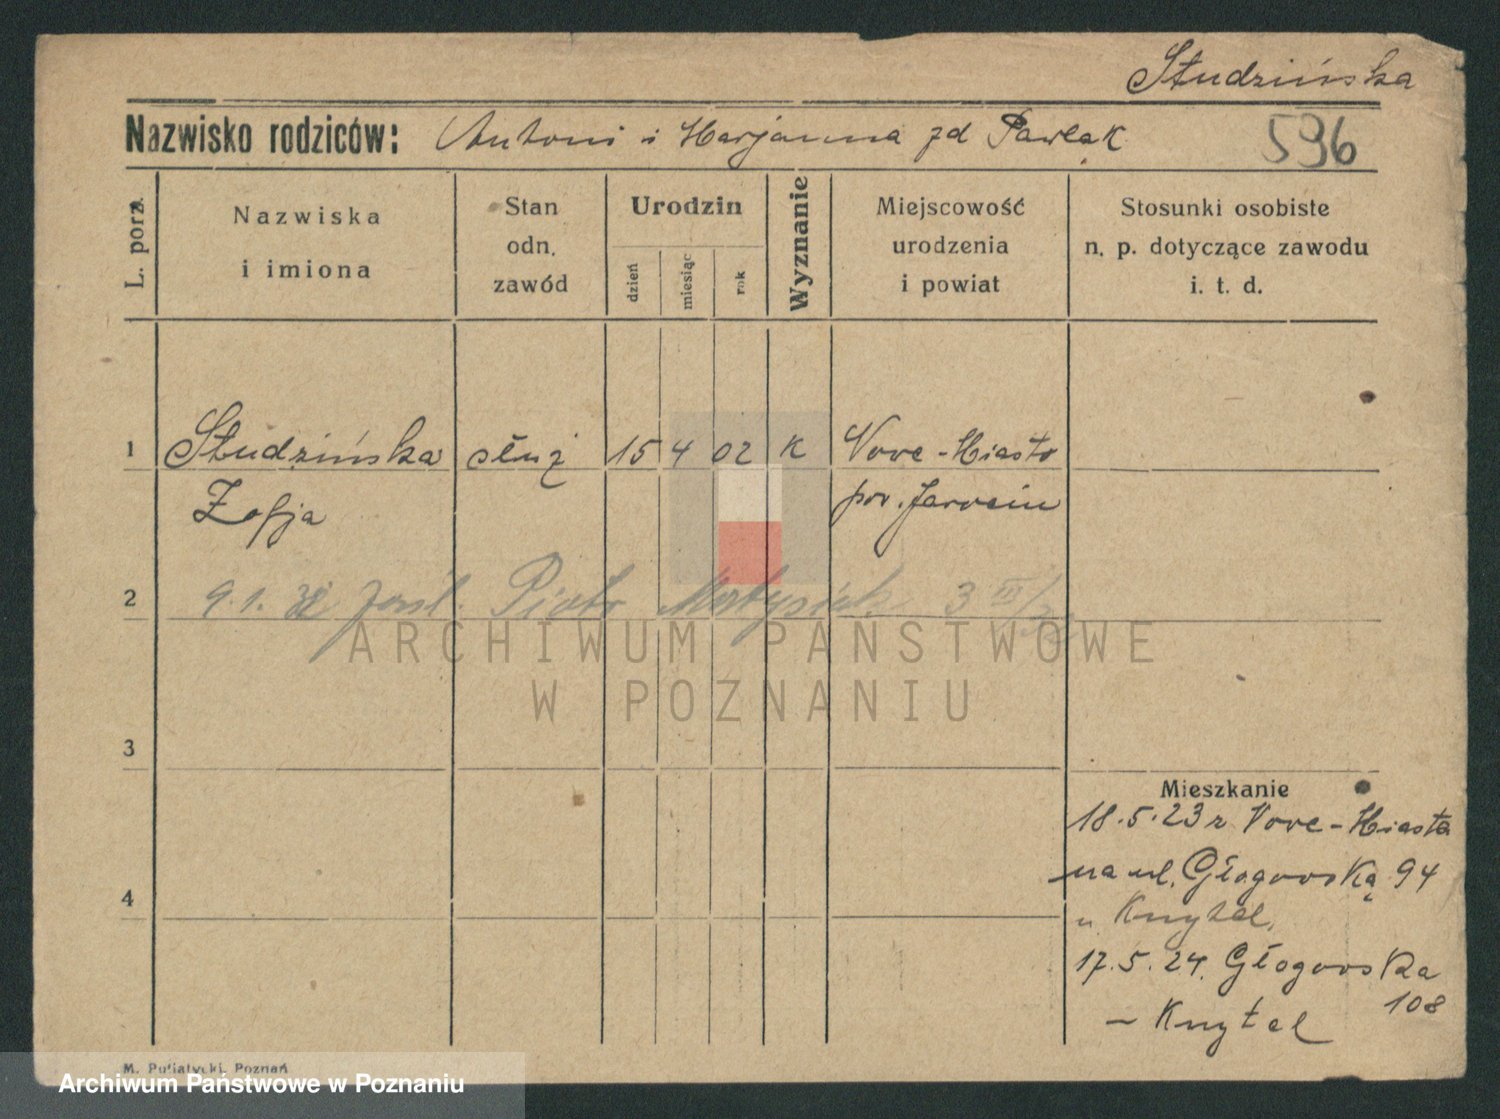 Studzińska
Nazwisko rodziców: Antoni i Marjanna zd Pawlak
596
L. porz.
Nazwiska
i imiona
Stan
odn.
zawód
Urodzin
dzień
miesiąc
rok
Wyznanie
Miejscowość
urodzenia
i powiat
Stosunki osobiste
n. p. dotyczące zawodu
i. t. d.
1 Studzińska służ 15 4 02 K Nowe-Miasto
Zofja pow. Jarocin
2 9.1. zaśl. Piotr Matysiak 3 III
ARCHIWUM PAŃSTWOWE
W POZNANIU
3
Mieszkanie
18.5.23 z Nowe-Miasta
na ul. Głogowską 94
4
u Knytel.
17.5.24. Głogowska
108
– Knytel
M. Putiatycki, Poznań
Archiwum Państwowe w Poznaniu